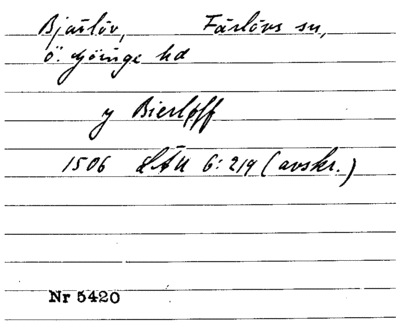 Bjärlöv, Färlövs sn,
Ö. Göinge hd
y Bierløff
1506 LÄU 6:219 (avskr.)
Nr 5420